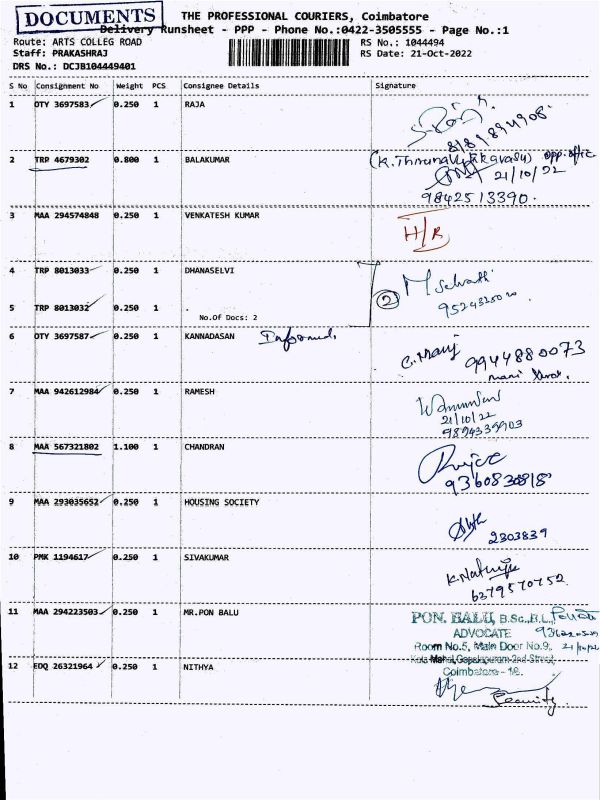 DOCUMENTS
THE PROFESSIONAL COURIERS, Coimbatore
Delivery Runsheet - PPP - Phone No.:0422-3505555 - Page No.:1
Route: ARTS COLLEG ROAD
RS No.: 1044494
Staff: PRAKASHRAJ
RS Date: 21-Oct-2022
DRS No.: DCJB104449401
S No Consignment No Weight PCS Consignee Details Signature
1 OTY 3697583 0.250 1 RAJA
8189894908
2 TRP 4679302 0.800 1 BALAKUMAR
opp-office
21/10/22
9842513390.
3 MAA 294574848 0.250 1 VENKATESH KUMAR
H/R
4 TRP 8013033 0.250 1 DHANASELVI
2
M Selvathi
5 TRP 8013032 0.250 1 .
No.Of Docs: 2
6 OTY 3697587 0.250 1 KANNADASAN Informed
C. Manj 9944880073
7 MAA 942612984 0.250 1 RAMESH
21/10/22
9894339903
8 MAA 567321802 1.100 1 CHANDRAN
9360830818
9 MAA 293035652 0.250 1 HOUSING SOCIETY
2303839
10 PMK 1194617 0.250 1 SIVAKUMAR
6379570752
11 MAA 294223503 0.250 1 MR.PON BALU
PON. BALU, B.Sc.,B.L.,
ADVOCATE
Room No.5, Main Door No.9, 21/10/22
Kala Mahal, Gopalapuram 2nd Street,
Coimbatore - 18.
12 EDQ 26321964 0.250 1 NITHYA
Security